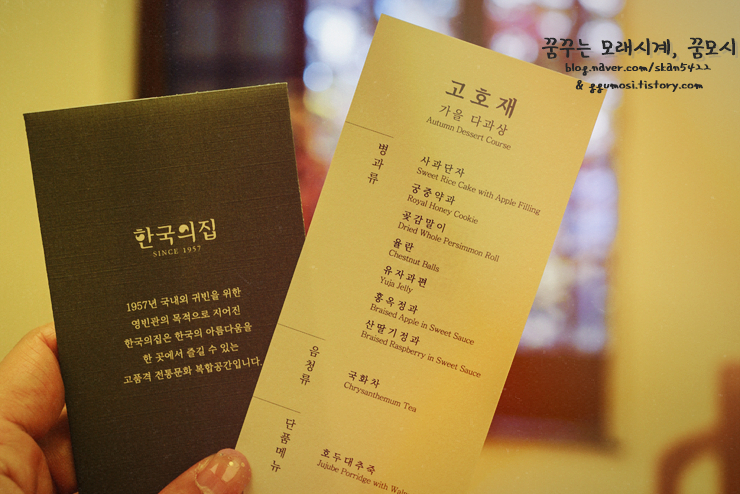 꿈꾸는 모래시계, 꿈모시
blog.naver.com/skan5422
& ggumosi.tistory.com
한국의집
SINCE 1957
1957년 국내외 귀빈을 위한
영빈관의 목적으로 지어진
한국의집은 한국의 아름다움을
한 곳에서 즐길 수 있는
고품격 전통문화 복합공간입니다.
고호재
가을 다과상
Autumn Dessert Course
병과류
사과단자
Sweet Rice Cake with Apple Filling
궁중약과
Royal Honey Cookie
곶감말이
Dried Whole Persimmon Roll
율란
Chestnut Balls
유자과편
Yuja Jelly
홍옥정과
Braised Apple in Sweet Sauce
산딸기정과
Braised Raspberry in Sweet Sauce
음청류
국화차
Chrysanthemum Tea
단품메뉴
호두대추죽
Jujube Porridge with